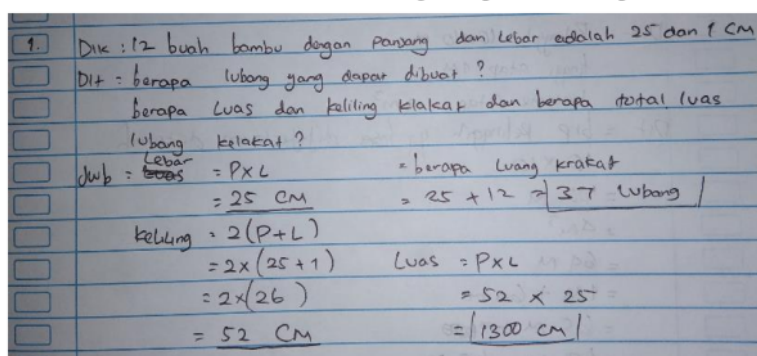 1. Dik : 12 buah bambu dengan panjang dan lebar adalah 25 dan 1 CM
Dit = berapa lubang yang dapat dibuat ?
berapa Luas dan keliling klakat dan berapa total luas
lubang kelakat ?
Jwb : Lebar = P x L
= 25 CM
keliling = 2(P+L)
= 2x(25+1)
= 2x(26)
= 52 CM
= berapa luang krakat
= 25 + 12 = 37 lubang
Luas = P x L
= 52 x 25
= 1300 cm